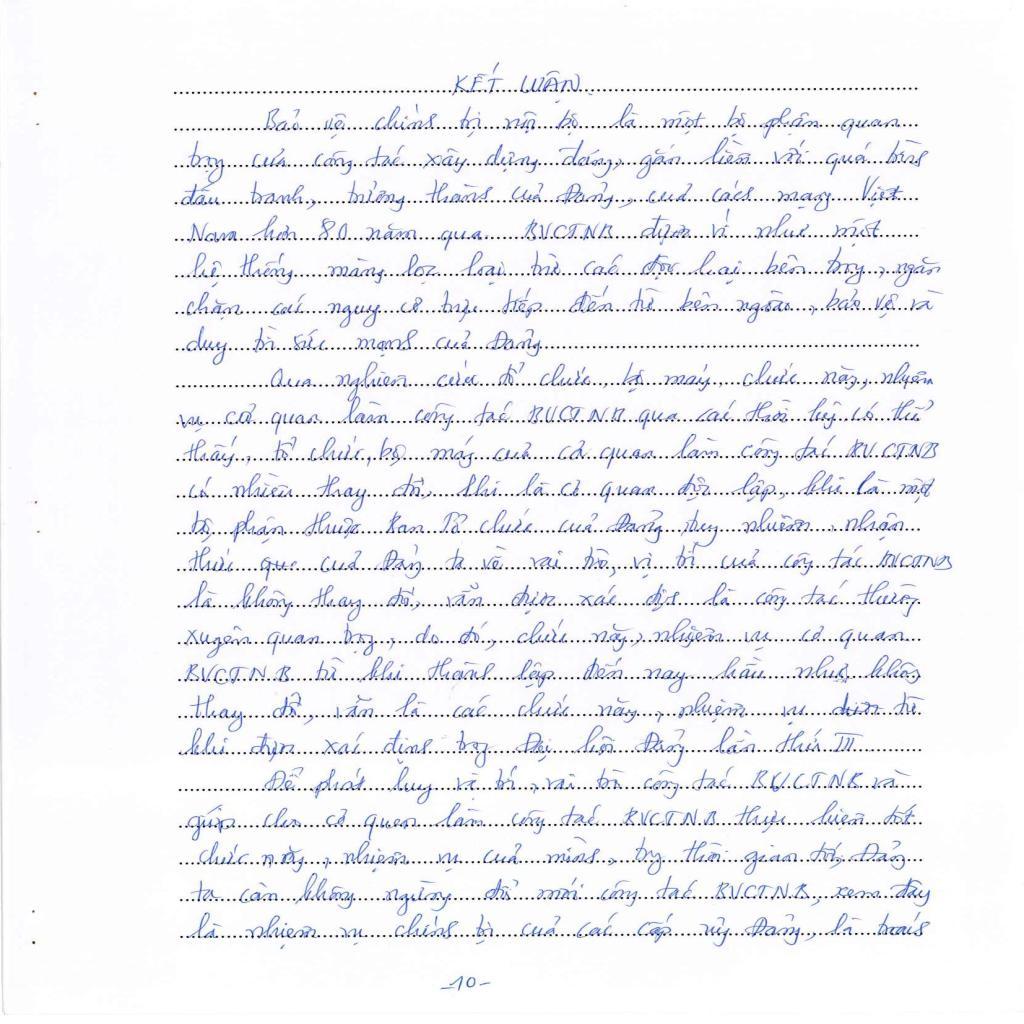 KẾT LUẬN
Bảo vệ chính trị nội bộ là một bộ phận quan
trọng của công tác xây dựng đảng, gắn liền với quá trình
đấu tranh, trưởng thành của Đảng, của cách mạng Việt
Nam hơn 80 năm qua. BVCTNB được ví như một
hệ thống màng lọc loại trừ các độc hại bên trong, ngăn
chặn các nguy cơ trực tiếp đến từ bên ngoài, bảo vệ và
duy trì sức mạnh của Đảng.
Qua nghiên cứu tổ chức, bộ máy, chức năng, nhiệm
vụ cơ quan làm công tác BVCTNB qua các thời kỳ có thể
thấy, tổ chức, bộ máy của cơ quan làm công tác BVCTNB
có nhiều thay đổi, khi là cơ quan độc lập, khi là một
bộ phận thuộc Ban Tổ chức của Đảng, tuy nhiên, nhận
thức của Đảng ta về vai trò, vị trí của công tác BVCTNB
là không thay đổi, vẫn được xác định là công tác thường
xuyên quan trọng, do đó, chức năng, nhiệm vụ cơ quan
BVCTNB từ khi thành lập đến nay hầu như không
thay đổi, vẫn là các chức năng, nhiệm vụ từ
khi được xác định trong Đại hội Đảng lần thứ III.
Để phát huy vị trí, vai trò công tác BVCTNB và
giúp cho cơ quan làm công tác BVCTNB thực hiện tốt
chức năng, nhiệm vụ của mình, trong thời gian tới, Đảng
ta cần không ngừng đổi mới công tác BVCTNB, xem đây
là nhiệm vụ chính trị của các cấp ủy Đảng, là trách
-10-